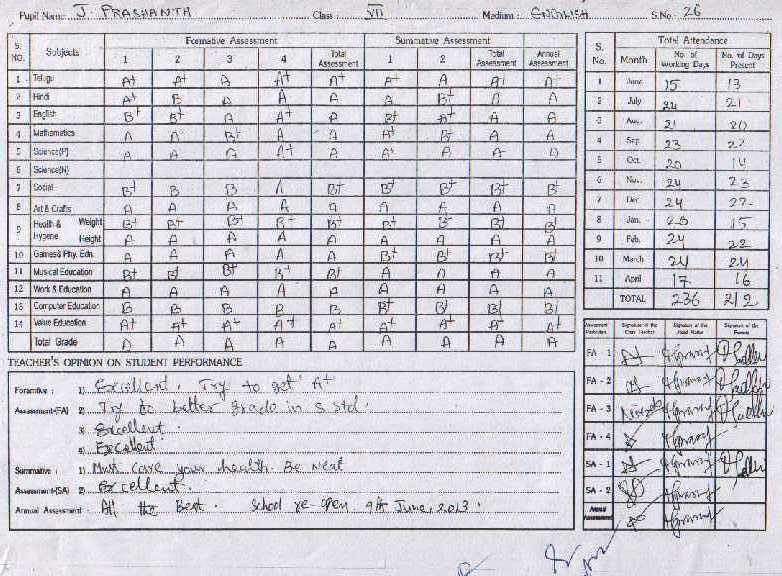 Pupil Name : J. PRASHANTH Class : VII Medium : ENGLISH S.No. 26
S. NO. Subjects Formative Assessment Summative Assessment Annual Assessment
1 2 3 4 Total Assessment 1 2 Total Assessment
1 Telugu A+ A+ B A+ A+ A+ A A+ A
2 Hindi A+ B A A A B+ A A
3 English B+ B+ A A+ A B+ A+ A A
4 Mathematics A A B+ A A+ B+ A A
5 Science(P) A A A+ A A+ A A
6 Science(N)
7 Social B+ B B A B+ B+ B+ B+ B+
8 Art & Crafts A A A A A A A A
9 Health & Hygene Weight B+ B+ B+ B+ B+ B+ B+ B+ B+
Height A A A A A A A A A
10 Games& Phy. Edn. A A A A A B+ B+ B+ B+
11 Musical Education B+ B+ B+ B+ B+ A A A A
12 Work & Education A A A A A A A A A
13 Computer Education B B B B B B+ B+ B+ B+
14 Value Education A+ A+ A+ A+ A+ A+ A+ A+ A+
Total Grade A A A A A A A A A
TEACHER'S OPINION ON STUDENT PERFORMANCE
Foramtive : 1) Excellent. Try to get A+
Assessment-(FA) 2) Try to better grade in S.Std.
3) Excellent.
4) Excellent
Summative : 1) Must care your health. Be neat
Assessment-(SA) 2) Excellent.
Annual Assessment : All the Best. School re-open 9th June, 2013.
S. No. Month Total Attendance
No. of Working Days No. of Days Present
1 June 15 13
2 July 24 21
3 Aug. 21 20
4 Sep. 23 22
5 Oct. 20 14
6 Nov. 24 23
7 Dec. 24 22
8 Jan. 20 15
9 Feb. 24 22
10 March 24 24
11 April 17 16
TOTAL 236 212
Signature of the Class Teacher Signature of the Head Master Signature of the Parents
FA - 1
FA - 2
FA - 3
FA - 4
SA - 1
SA - 2
Annual Assessment